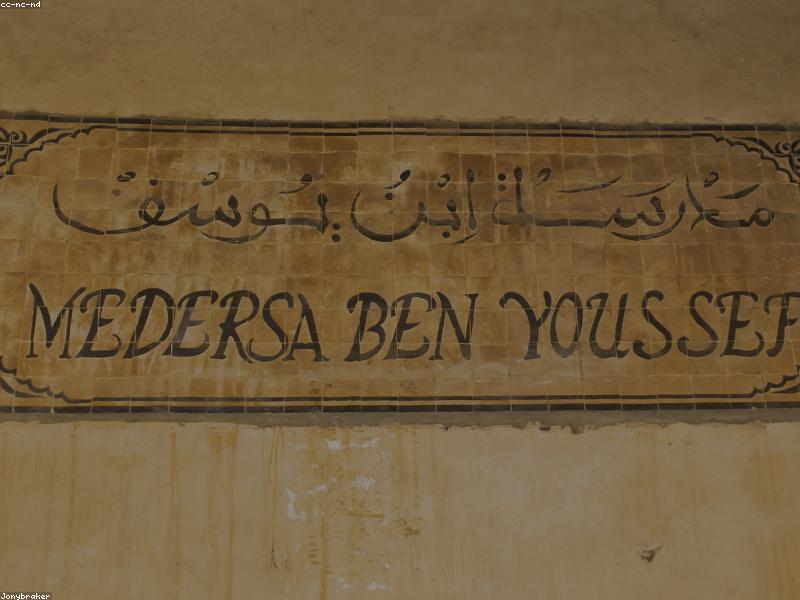 cc-nc-nd
مدرسة ابن يوسف
MEDERSA BEN YOUSSEF
Jonybraker